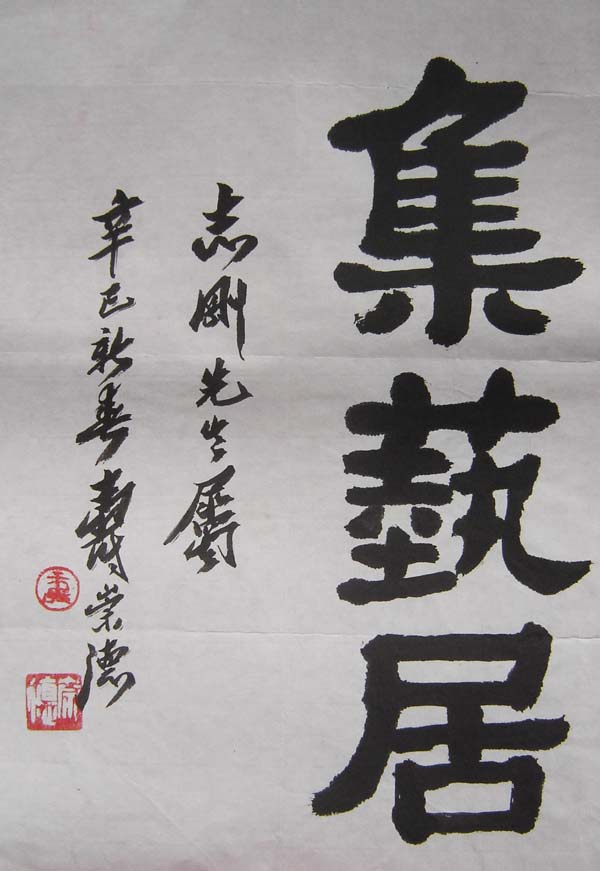 集藝居
志剛先生屬
辛巳新春壽崇德